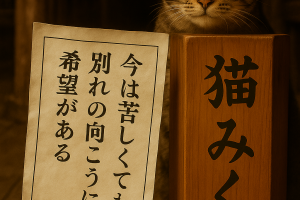 今は苦しくても
別れの向こうに
希望がある
猫みく